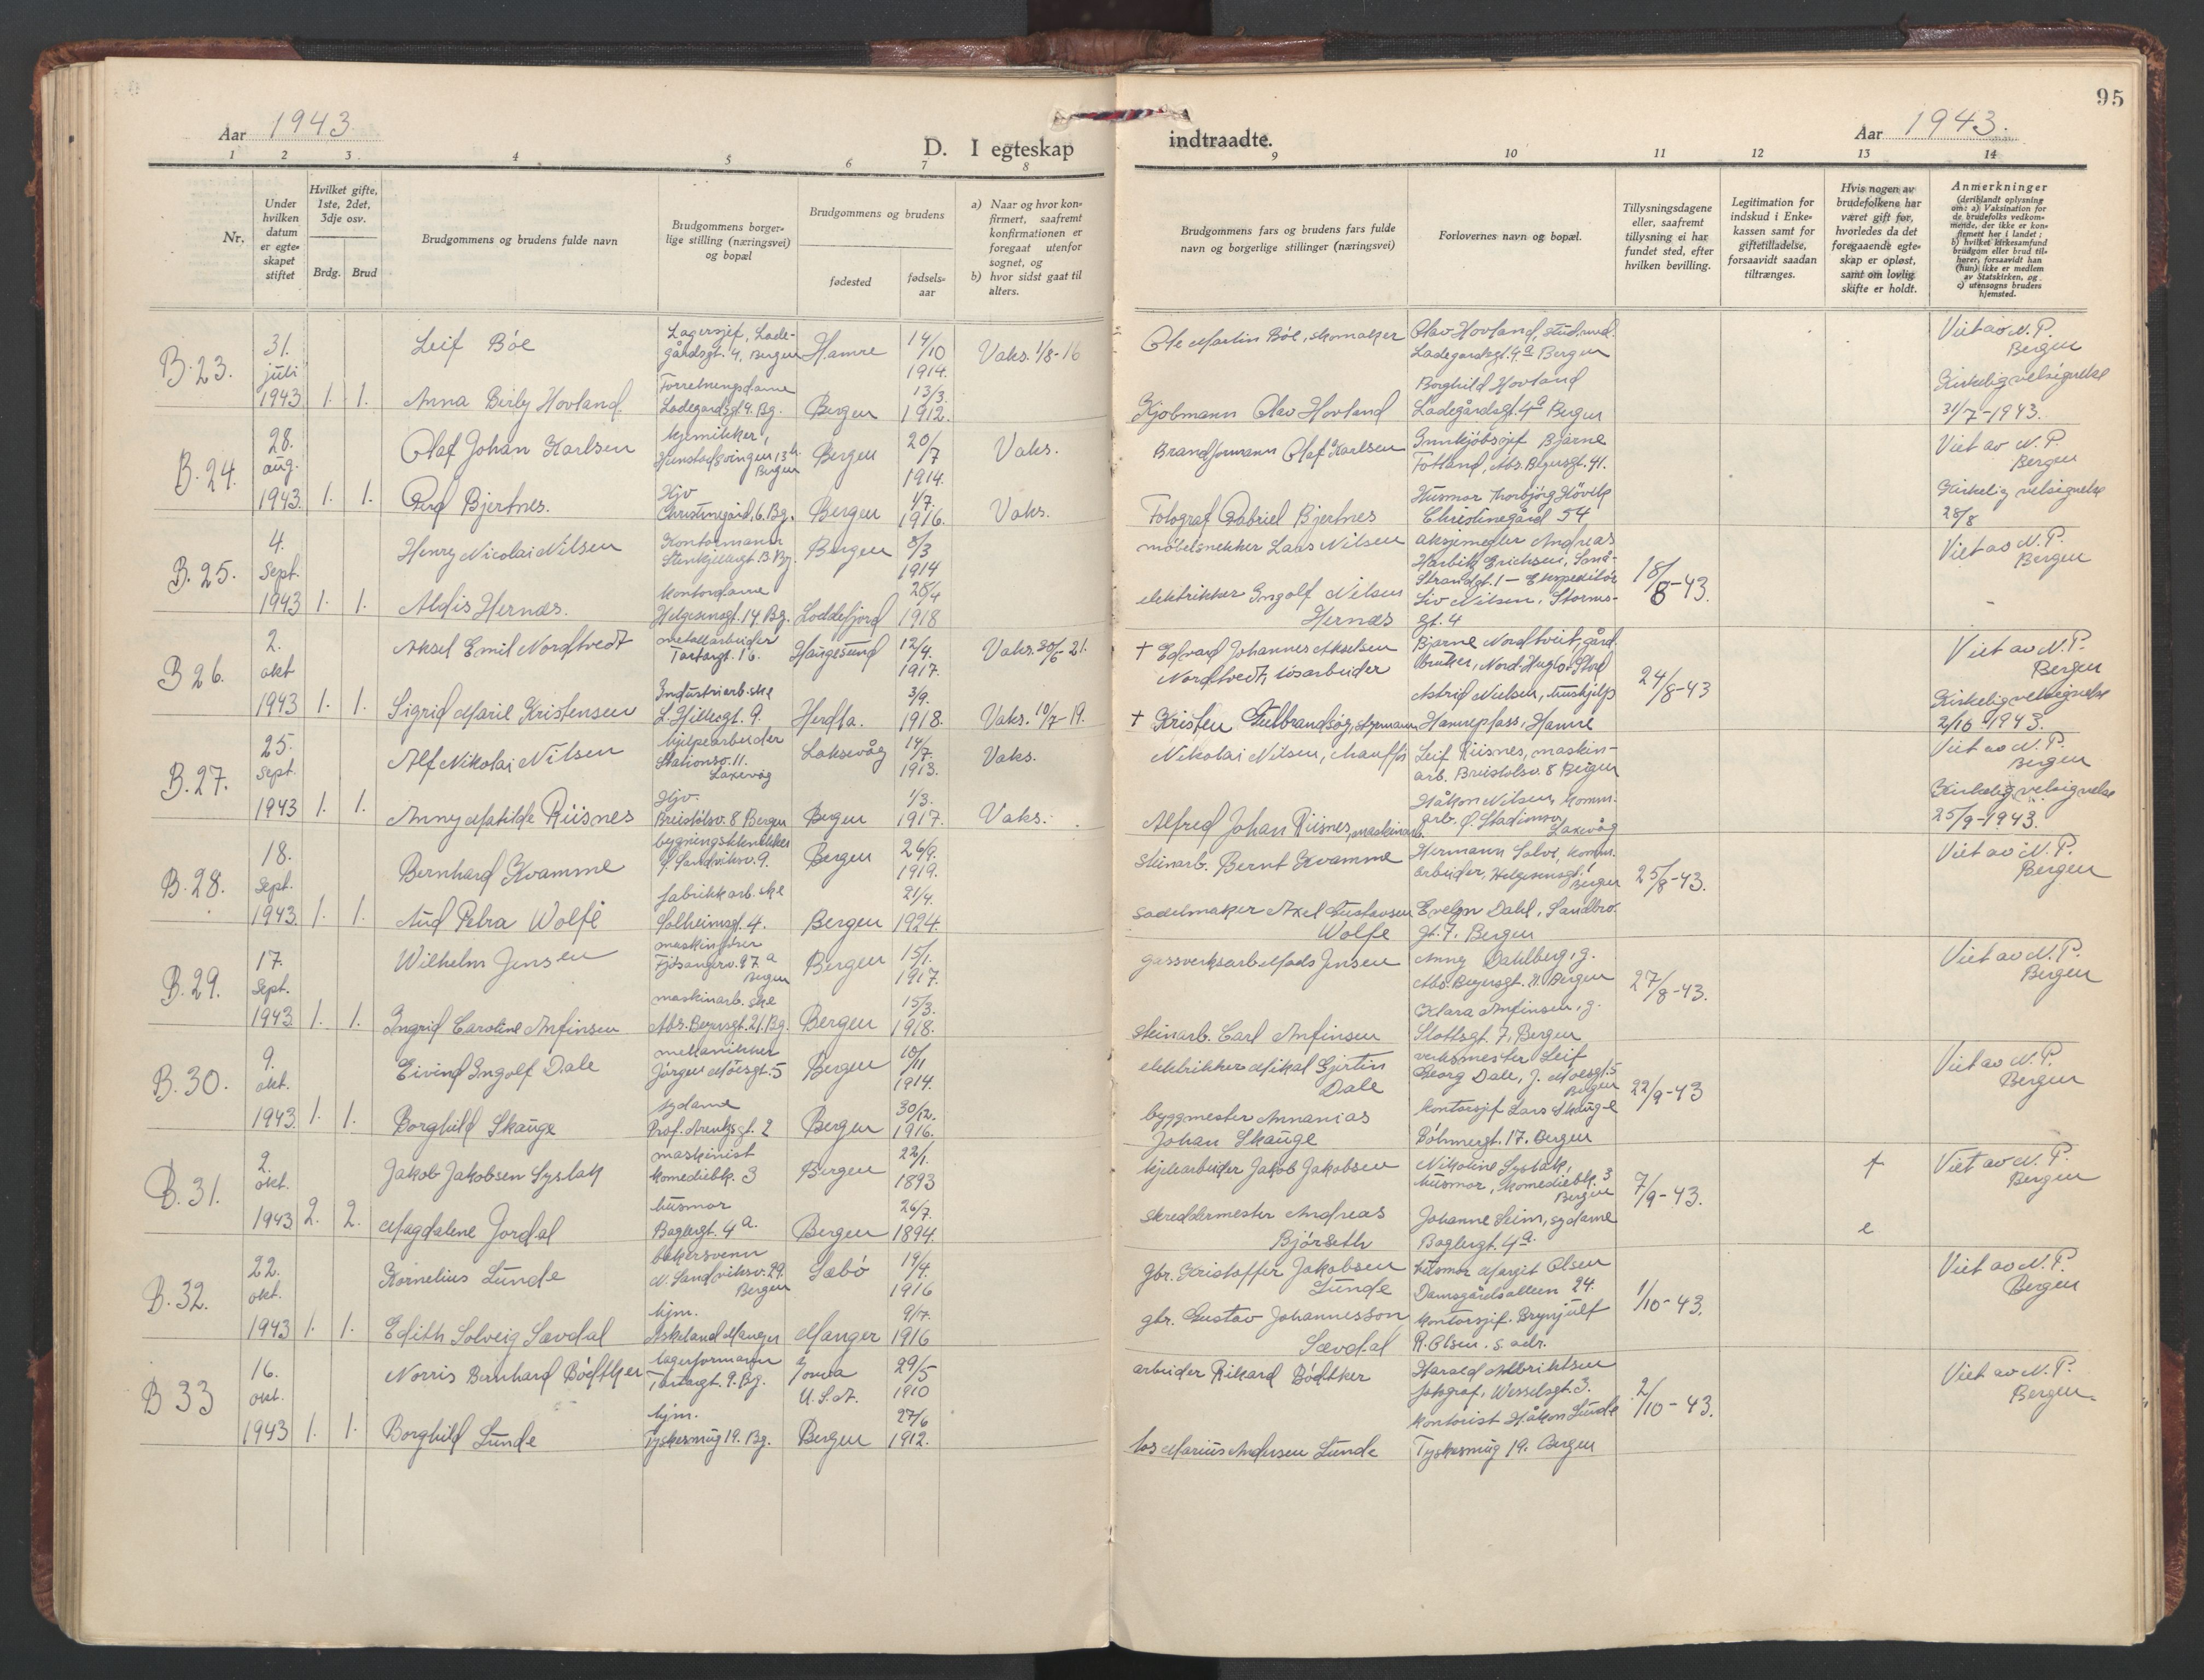 95
Aar 1943
D. I egteskap
indtraadte.
Aar 1943.
1 2 3 4 5 6 7 8 9 10 11 12 13 14
Nr.
Under hvilken datum er egteskapet stiftet
Hvilket gifte, 1ste, 2det, 3dje osv.
Brdg. Brud
Brudgommens og brudens fulde navn
Brudgommens borgerlige stilling (næringsvei) og bopæl
Brudgommens og brudens
fødested
fødselsaar
a) Naar og hvor konfirmert, saafremt konfirmationen er foregaat utenfor sognet, og
b) hvor sidst gaat til alters.
Brudgommens fars og brudens fars fulde navn og borgerlige stillinger (næringsvei)
Forlovernes navn og bopæl.
Tillysningsdagene eller, saafremt tillysning ei har fundet sted, efter hvilken bevilling.
Legitimation for indskud i Enkekassen samt for giftetilladelse, forsaavidt saadan tiltrænges.
Hvis nogen av brudefolkene har været gift før, hvorledes da det foregaaende egteskap er opløst, samt om lovlig skifte er holdt.
Anmerkninger (deriblandt oplysning om: a) Vaksination for de brudefolks vedkommende, der ikke er konfirmert her i landet; b) hvilket kirkesamfund brudgom eller brud tilhører, forsaavidt han (hun) ikke er medlem av Statskirken, og c) utensogns bruders hjemsted.
B.23. 31. juli 1943 1. 1.
Leif Böe Lagersjef, Ladegårdsgt. 4, Bergen Hamre 14/10 1914. Vaks. 1/8-16
Ole Martin Böe, skomaker Olav Hovland, stud.med. Ladegardsgt. 4a Bergen Viet av N.P. Bergen
Anna Berly Hovland. Forretningsdame Ladegardsgt. 4. Bg. Bergen 13/3. 1912.
Kjöbmann Olav Hovland Borghild Hovland Ladegårdsgt. 4a Bergen Kirkelig velsignelse 31/7-1943.
B.24. 28. aug. 1943. 1. 1.
Olaf Johan Karlsen kjemikker, Bergen Bergen 20/7 1914. Vaks.
Brandformann Olaf Karlsen Innkjöbsjef Bjarne Totland, Abs. Beyersgt. 41. Viet av N.P. Bergen
Gerd Bjertnes. Hjv Christinegård, 6. Bg. Bergen 1/7. 1916. Vaks.
Fotograf Gabriel Bjertnes Husmor Thorbjörg Christinegård 54 Kirkelig velsignelse 28/8
B.25. 4. Sept. 1943 1. 1.
Henry Nicolai Nilsen Kontormann Bg. Bergen 8/3 1914
möbelsnekker Lars Nilsen aksjemegler Andreas Erichsen, Småstrandgt. 1 - Ekspeditör 18/8-43. Viet av N.P. Bergen
Aldis Hernæs. kontordame Helgesensgt. 14 Bg. Loddefjord 28/4 1918
elektrikker Ingolf Nilsen Hernæs Liv Nilsen, Stormsgt. 4
B26. 2. okt 1943 1. 1.
Aksel Emil Nordtvedt metallarbeider Tartargt. 16. Haugesund 12/4. 1917. Vaks. 30/6-21.
† Edvard Johannes Akselsen Nordtvedt, lösarbeider Bjarne Nordtveit, gårdbruker, Nord-Huglo, Stord 24/8-43 Viet av N.P. Bergen
Sigrid Marie Kristensen Industriarb.ske L. Hillesgt. 9. Herdla. 3/9. 1918. Vaks. 10/7-19.
† Kristen Gulbrandsøy, Astrid Nielsen, hushjelp Hanneplass, Hamre Kirkelig velsignelse 2/10 1943.
B.27. 25. sept. 1943 1. 1.
Alf Nikolai Nilsen hjelpearbeider Stationsv. 11. Laxevåg Laksevåg 14/7. 1913. Vaks.
Nikolai Nilsen, chauffør Leif Riisnes, maskinarb. Breistölsv. 8 Bergen Viet av N.P. Bergen
Anny Matilde Riisnes Hjv. Breistölsv. 8 Bergen Bergen 1/3. 1917. Vaks.
Alfred Johan Riisnes, maskinarb. Håkon Nilsen, komm. arb. Ö. Stadionsv. Laxevåg Kirkelig velsignelse 25/9-1943.
B.28. 18. Sept. 1943. 1. 1.
Bernhard Kvamme bygningstekniker Ö. Sandviksv. 9. Bergen 26/9. 1919.
steinarb. Bernt Kvamme Hermann Salvi, komm. arbeider, Helgesensgt. Bergen 25/8-43. Viet av N.P. Bergen
Aud Petra Wolfe fabrikkarb.ske Solheimsgt. 4. Bergen 21/4. 1924.
sadelmaker Axel Gustavsen Wolfe Evelyn Dahl, Sandbrogt. 7, Bergen
B.29. 17. Sept. 1943 1. 1.
Wilhelm Jensen maskinfører Fjösangerv. 97a Bergen Bergen 15/1. 1917.
gassverksarb. Mads Jensen Anny Dahlberg, g. Abs. Beyersgt. 21. Bergen 27/8-43. Viet av N.P. Bergen
Ingrid Caroline Anfinsen maskinarb.ske Abs. Beyersgt. 21. Bg. Bergen 15/3. 1918.
steinarb. Carl Anfinsen Klara Anfinsen, g. Slottsgt. 7, Bergen
B.30. 9. okt. 1943. 1. 1.
Eivind Ingolf Dale mekanikker Jörgen Moesgt. 5 Bergen 10/11 1914.
elektrikker Mikal Gjertin Dale verksmester Leif Georg Dale, J. Moesgt. 5 Bergen 22/9-43 Viet av N.P. Bergen
Borghild Skauge sydame Prof. Arentzgt. 2 Bergen 30/12. 1916.
byggmester Annanias Johan Skauge kontorsjef Lars Skauge Böhmergt. 17. Bergen
B.31. 2. okt. 1943 2. 2.
Jakob Jakobsen Syslak maskinist Komediebk. 3 Bergen 22/1. 1893
kjelearbeider Jakob Jakobsen Nikoline Syslak, husmor, Komediebk. 3 Bergen 7/9-43. † Viet av N.P. Bergen
Magdalene Jordal husmor Baglergt. 4a. Bergen 26/7. 1894.
skreddermester Andreas Björseth Johanne Seim, sydame Baglergt. 4a. e
B.32. 22. okt. 1943 1. 1.
Kornelius Lunde bakersvenn N. Sandviksv. 29. Bergen Sæbö 19/4. 1916
gbr. Kristoffer Jakobsen Lunde husmor Margit Olsen Damsgårdsalleen 24. 1/10-43. Viet av N.P. Bergen
Edith Solveig Sævdal hjm. Askeland Manger Manger 9/7. 1916
gbr. Gustav Johannesson Sævdal kontorsjef. Brynjulf R. Olsen. s. adr.
B 33 16. okt. 1943 1. 1.
Norris Bernhard Bödtker lagerformann Tartargt. 9. Bg. Iowa U.S.A. 29/5 1910
arbeider Rikard Bödtker Harald Albriktsen Wesselsgt. 3. 2/10-43. Viet av N.P. Bergen.
Borghild Lunde hjm. Tyskesmug 19. Bg. Bergen 27/6 1912.
los Marius Andersen Lunde kontorist Håkon Lunde Tyskesmug 19. Bergen